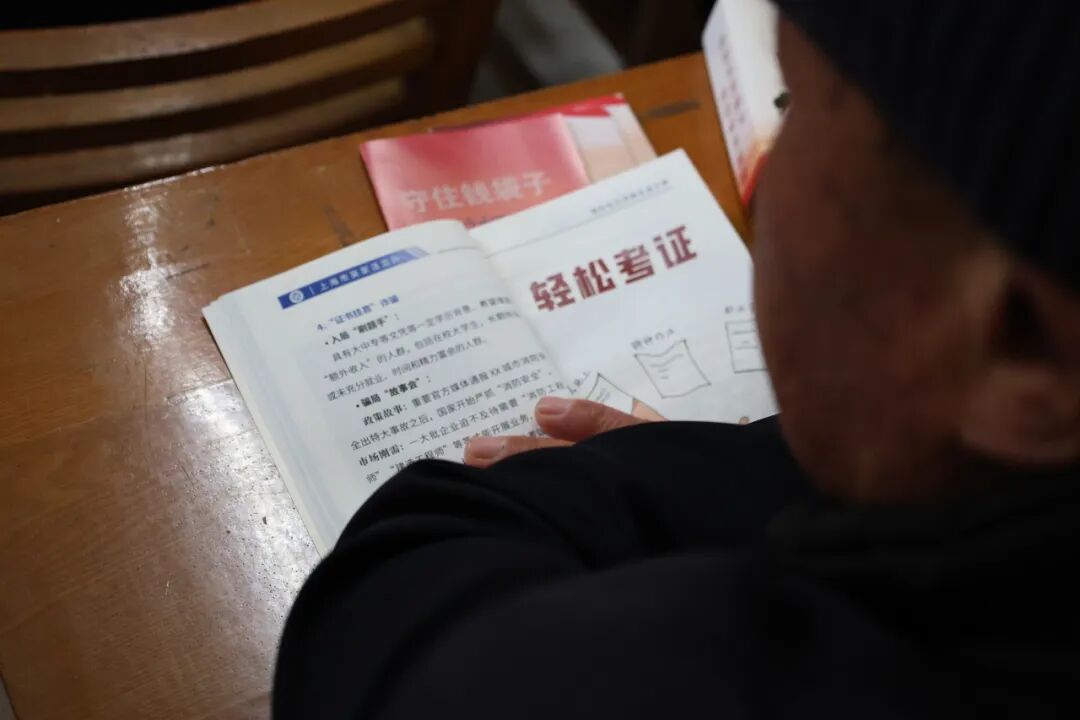 守住钱袋子
上海市
4. “证书挂靠”诈骗
·入局“刷题手”：
具有大中专等文凭等一定学历背景、希望增加
“额外收入”的人群，包括在校大学生，长期待业
或未充分就业、时间和精力富余的人群。
·骗局“故事会”：
政策故事：重要官方媒体通报XX城市消防安全
全出特大事故之后，国家开始严抓“消防安全”
市场刚需：一大批企业迫不及待需要“消防工程
师”“建造工程师”等 开展业务，
轻松考证